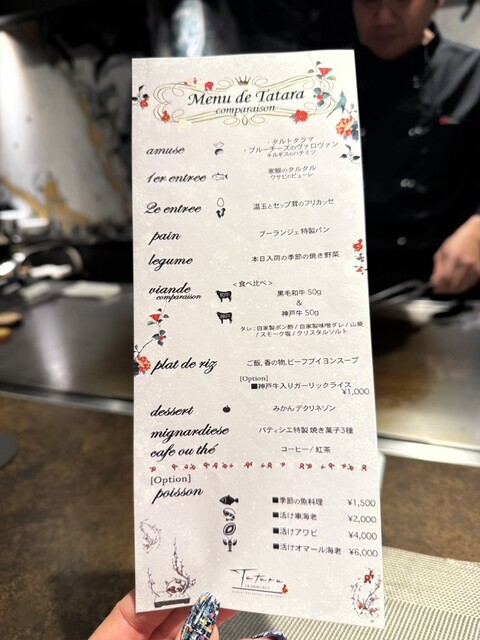 Menu de Tatara
comparaison
amuse
・タルトタラマ
・ブルーチーズのヴァロヴァン
キルギスのハチミツ
1er entree
タルタル
ワサビのピューレ
2e entree
温玉とセップ茸のフリカッセ
pain
ブーランジェ特製パン
legume
本日入荷の季節の焼き野菜
viande
comparaison
＜食べ比べ＞
黒毛和牛 50g
&
神戸牛 50g
タレ：自家製ポン酢 / 自家製味噌ダレ / 山葵
/ スモーク塩 / クリスタルソルト
plat de riz
ご飯,香の物,ビーフブイヨンスープ
[Option]
■神戸牛入りガーリックライス
¥1,000
dessert
みかんデクリネゾン
mignardiese
パティシエ特製 焼き菓子3種
cafe ou thé
コーヒー / 紅茶
[Option]
poisson
■季節の魚料理 ¥1,500
■活け車海老 ¥2,000
■活けアワビ ¥4,000
■活けオマール海老 ¥6,000
Tatara